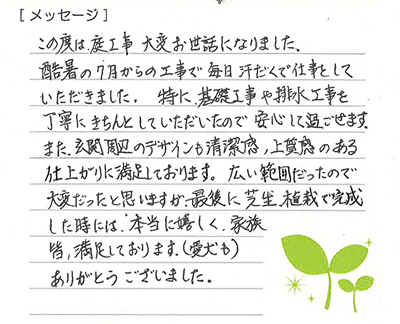 [メッセージ]
この度は、庭工事 大変お世話になりました、
酷暑の7月からの工事で毎日汗だくで仕事をして
いただきました。 特に、基礎工事や排水工事を
丁寧にきちんとしていただいたので安心して過ごせます
また、玄関周辺のデザインも清潔感、上質感のある
仕上がりに満足しております。広い範囲だったので
大変だったと思いますが、最後に芝生、植栽で完成
した時には、本当に嬉しく、家族
皆、満足しております。(愛犬も)
ありがとうございました。